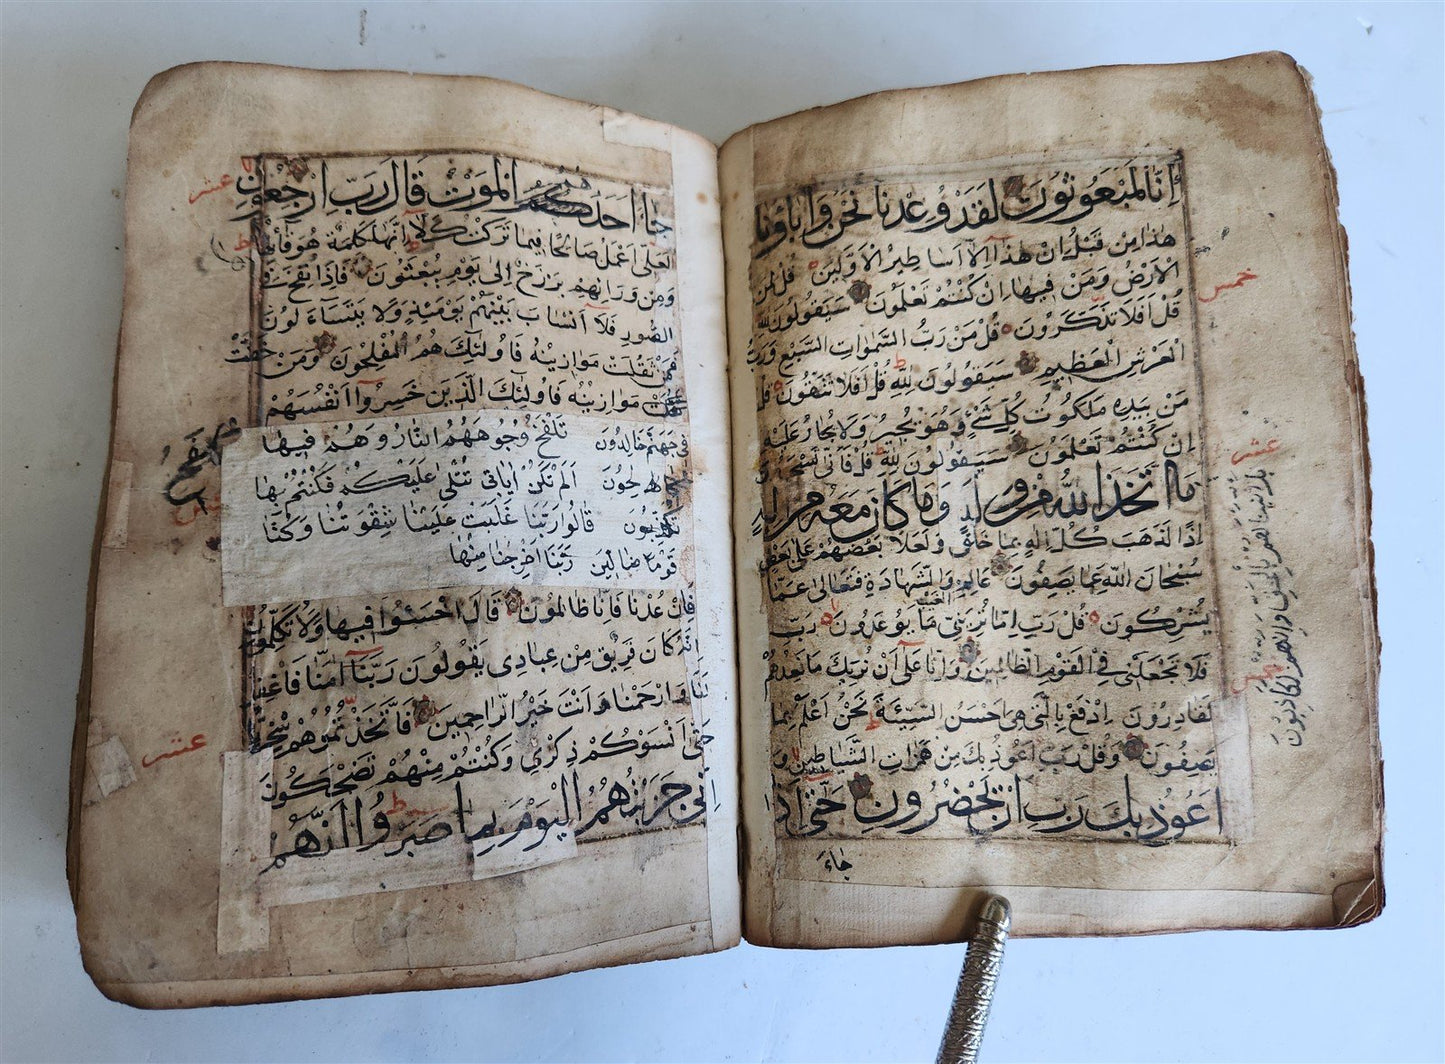 أئنا لمبعوثون لقد وعدنا نحن واباؤنا
هذا من قبل ان هذا الا اساطير الاولين قل لمن
الارض ومن فيها ان كنتم تعلمون سيقولون لله
قل افلا تذكرون قل من رب السموات السبع ورب
العرش العظيم سيقولون لله قل افلا تتقون قل
من بيده ملكوت كل شئ وهو يجير ولا يجار عليه
ان كنتم تعلمون سيقولون لله قل فانى تسحرون
ما اتخذ الله من ولد وما كان معه من اله
اذا لذهب كل اله بما خلق ولعلا بعضهم على بعض
سبحان الله عما يصفون عالم الغيب والشهادة فتعالى عما
يشركون قل رب اما تريني ما يوعدون رب
فلا تجعلني في القوم الظالمين وانا على ان نريك ما نعدهم
لقادرون ادفع بالتي هي احسن السيئة نحن اعلم بما
يصفون وقل رب اعوذ بك من همزات الشياطين و
اعوذ بك رب ان يحضرون حتى اذا
جاء
خمس
عشر
بل اتيناهم بالحق وانهم لكاذبون
جاء احدكم الموت قال رب ارجعون
لعلي اعمل صالحا فيما تركت كلا انها كلمة هو قائلها
ومن ورائهم برزخ الى يوم يبعثون فاذا نفخ في
الصور فلا انساب بينهم يومئذ ولا يتساءلون
فمن ثقلت موازينه فاولئك هم المفلحون ومن خفت
موازينه فاولئك الذين خسروا انفسهم
في جهنم خالدون تلفح وجوههم النار وهم فيها
كالحون الم تكن اياتي تتلى عليكم فكنتم بها
تكذبون قالوا ربنا غلبت علينا شقوتنا وكنا
قوما ضالين ربنا اخرجنا منها
فان عدنا فانا ظالمون قال اخسئوا فيها ولا تكلمون
انه كان فريق من عبادي يقولون ربنا امنا فاغفر
لنا وارحمنا وانت خير الراحمين فاتخذتموهم سخريا
حتى انسوكم ذكري وكنتم منهم تضحكون
اني جزيتهم اليوم بما صبروا انهم
عشر
عشر